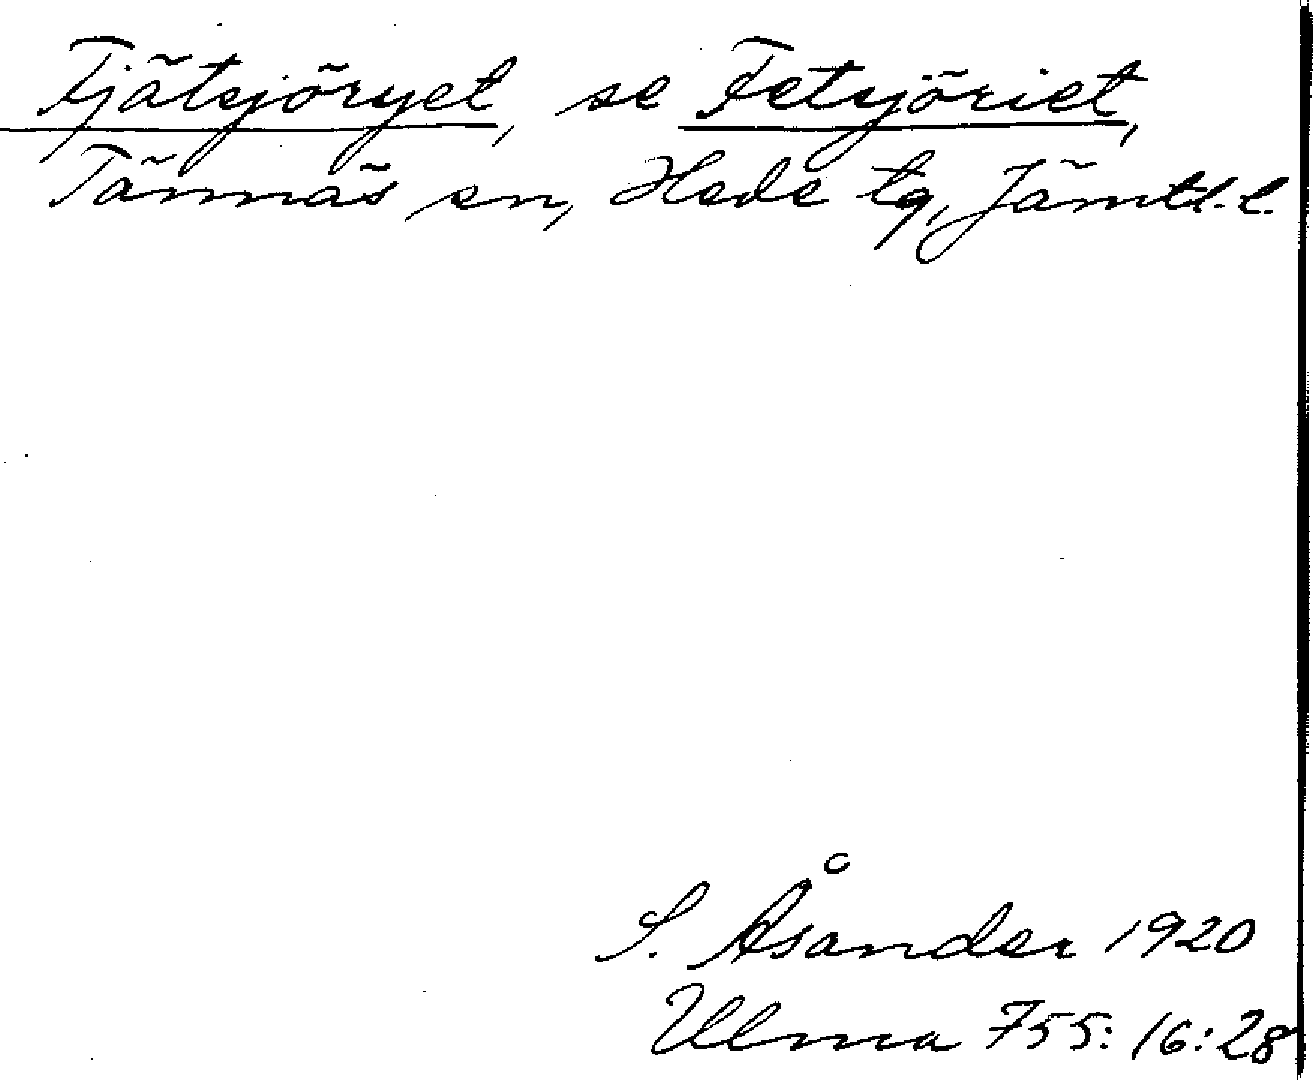 Fjätsjöryet, se Fetsjöriet,
Tännäs sn, Hede tg, Jämtl. l.
S. Åsander 1920
Ulma 755: 16:28